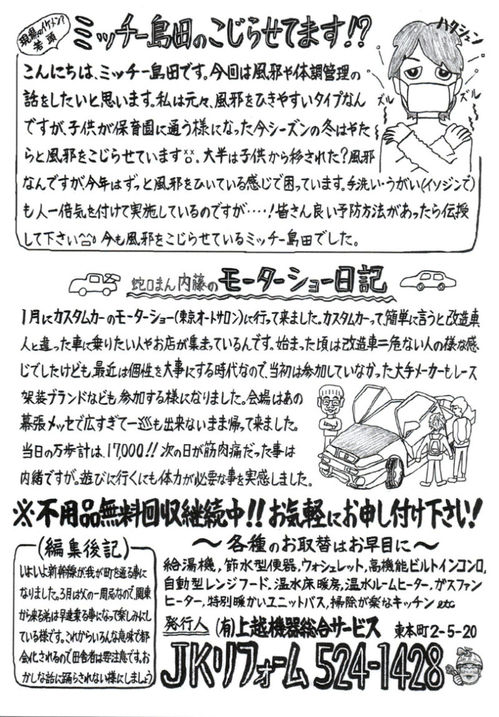 現場のイケメン?
若頭
ミッチー島田のこじらせてます!?
ハクション
ズル
ズル
こんにちは、ミッチー島田です。今回は風邪や体調管理の
話をしたいと思います。私は元々、風邪をひきやすいタイプなん
ですが、子供が保育園に通う様になった今シーズンの冬はやた
らと風邪をこじらせています。大半は子供から移された?風邪
なんですが今年はずっと風邪をひいている感じで困っています。手洗い・うがい(イソジンで)
も人一倍気を付けて実施しているのですが‥‥!皆さん良い予防方法があったら伝授
して下さい 今も風邪をこじらせているミッチー島田でした。
蛇口まん内藤のモーターショー日記
1月にカスタムカーのモーターショー(東京オートサロン)に行って来ました。カスタムカーって簡単に言うと改造車
人と違った車に乗りたい人やお店が集まっているんです。始まった頃は改造車=危ない人の様な感
じでしたけども、最近は個性を大事にする時代なので、当初は参加していなかった大手メーカーもレース
架装ブランドなども参加する様になりました。会場はあの
幕張メッセで広すぎて一巡も出来ないまま帰って来ました。
当日の万歩計は、17,000!!次の日が筋肉痛だった事は
内緒ですが。遊びに行くにも体力が必要な事を実感しました。
※不用品無料回収継続中!!お気軽にお申し付け下さい!
(編集後記)
いよいよ新幹線が我が町を通る事に
なりました。3月はXの一周忌なので、関東
から来る弟は早速乗る事になって楽しみにし
ている様です。これからいろんな意味で都
会化されるので田舎者は要注意です。お
かしな話に踊らされない様にしましょう
～各種のお取替はお早目に～
給湯機,節水型便器,ウォシュレット,高機能ビルトインコンロ,
自動型レンジフード.温水床暖房,温水ルームヒーター,ガスファン
ヒーター,特別暖かいユニットバス,掃除が楽なキッチン etc
発行人 (有)上越機器総合サービス 東本町2-5-20
JKリフォーム 524-1428